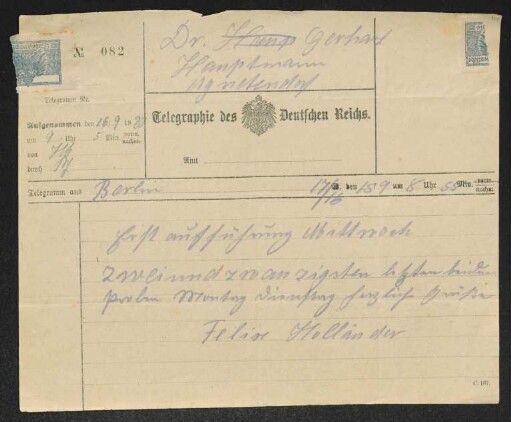 № 082
Dr. Hans Gerhart
Hauptmann
Agnetendorf
Telegramm Nr.
Aufgenommen den 16.9 19
um 9 Uhr 5 Min. vorm. nachm.
von
durch
Telegraphie des Deutschen Reichs.
Amt
Telegramm aus Berlin 17/16 W. den 15 9 um 8 Uhr 55 Min. vorm. nachm.
Erstaufführung Mittwoch
zweiundzwanzigsten letzten beiden
Proben Montag Dienstag herzliche Grüsse
Felix Holländer
C. 187.